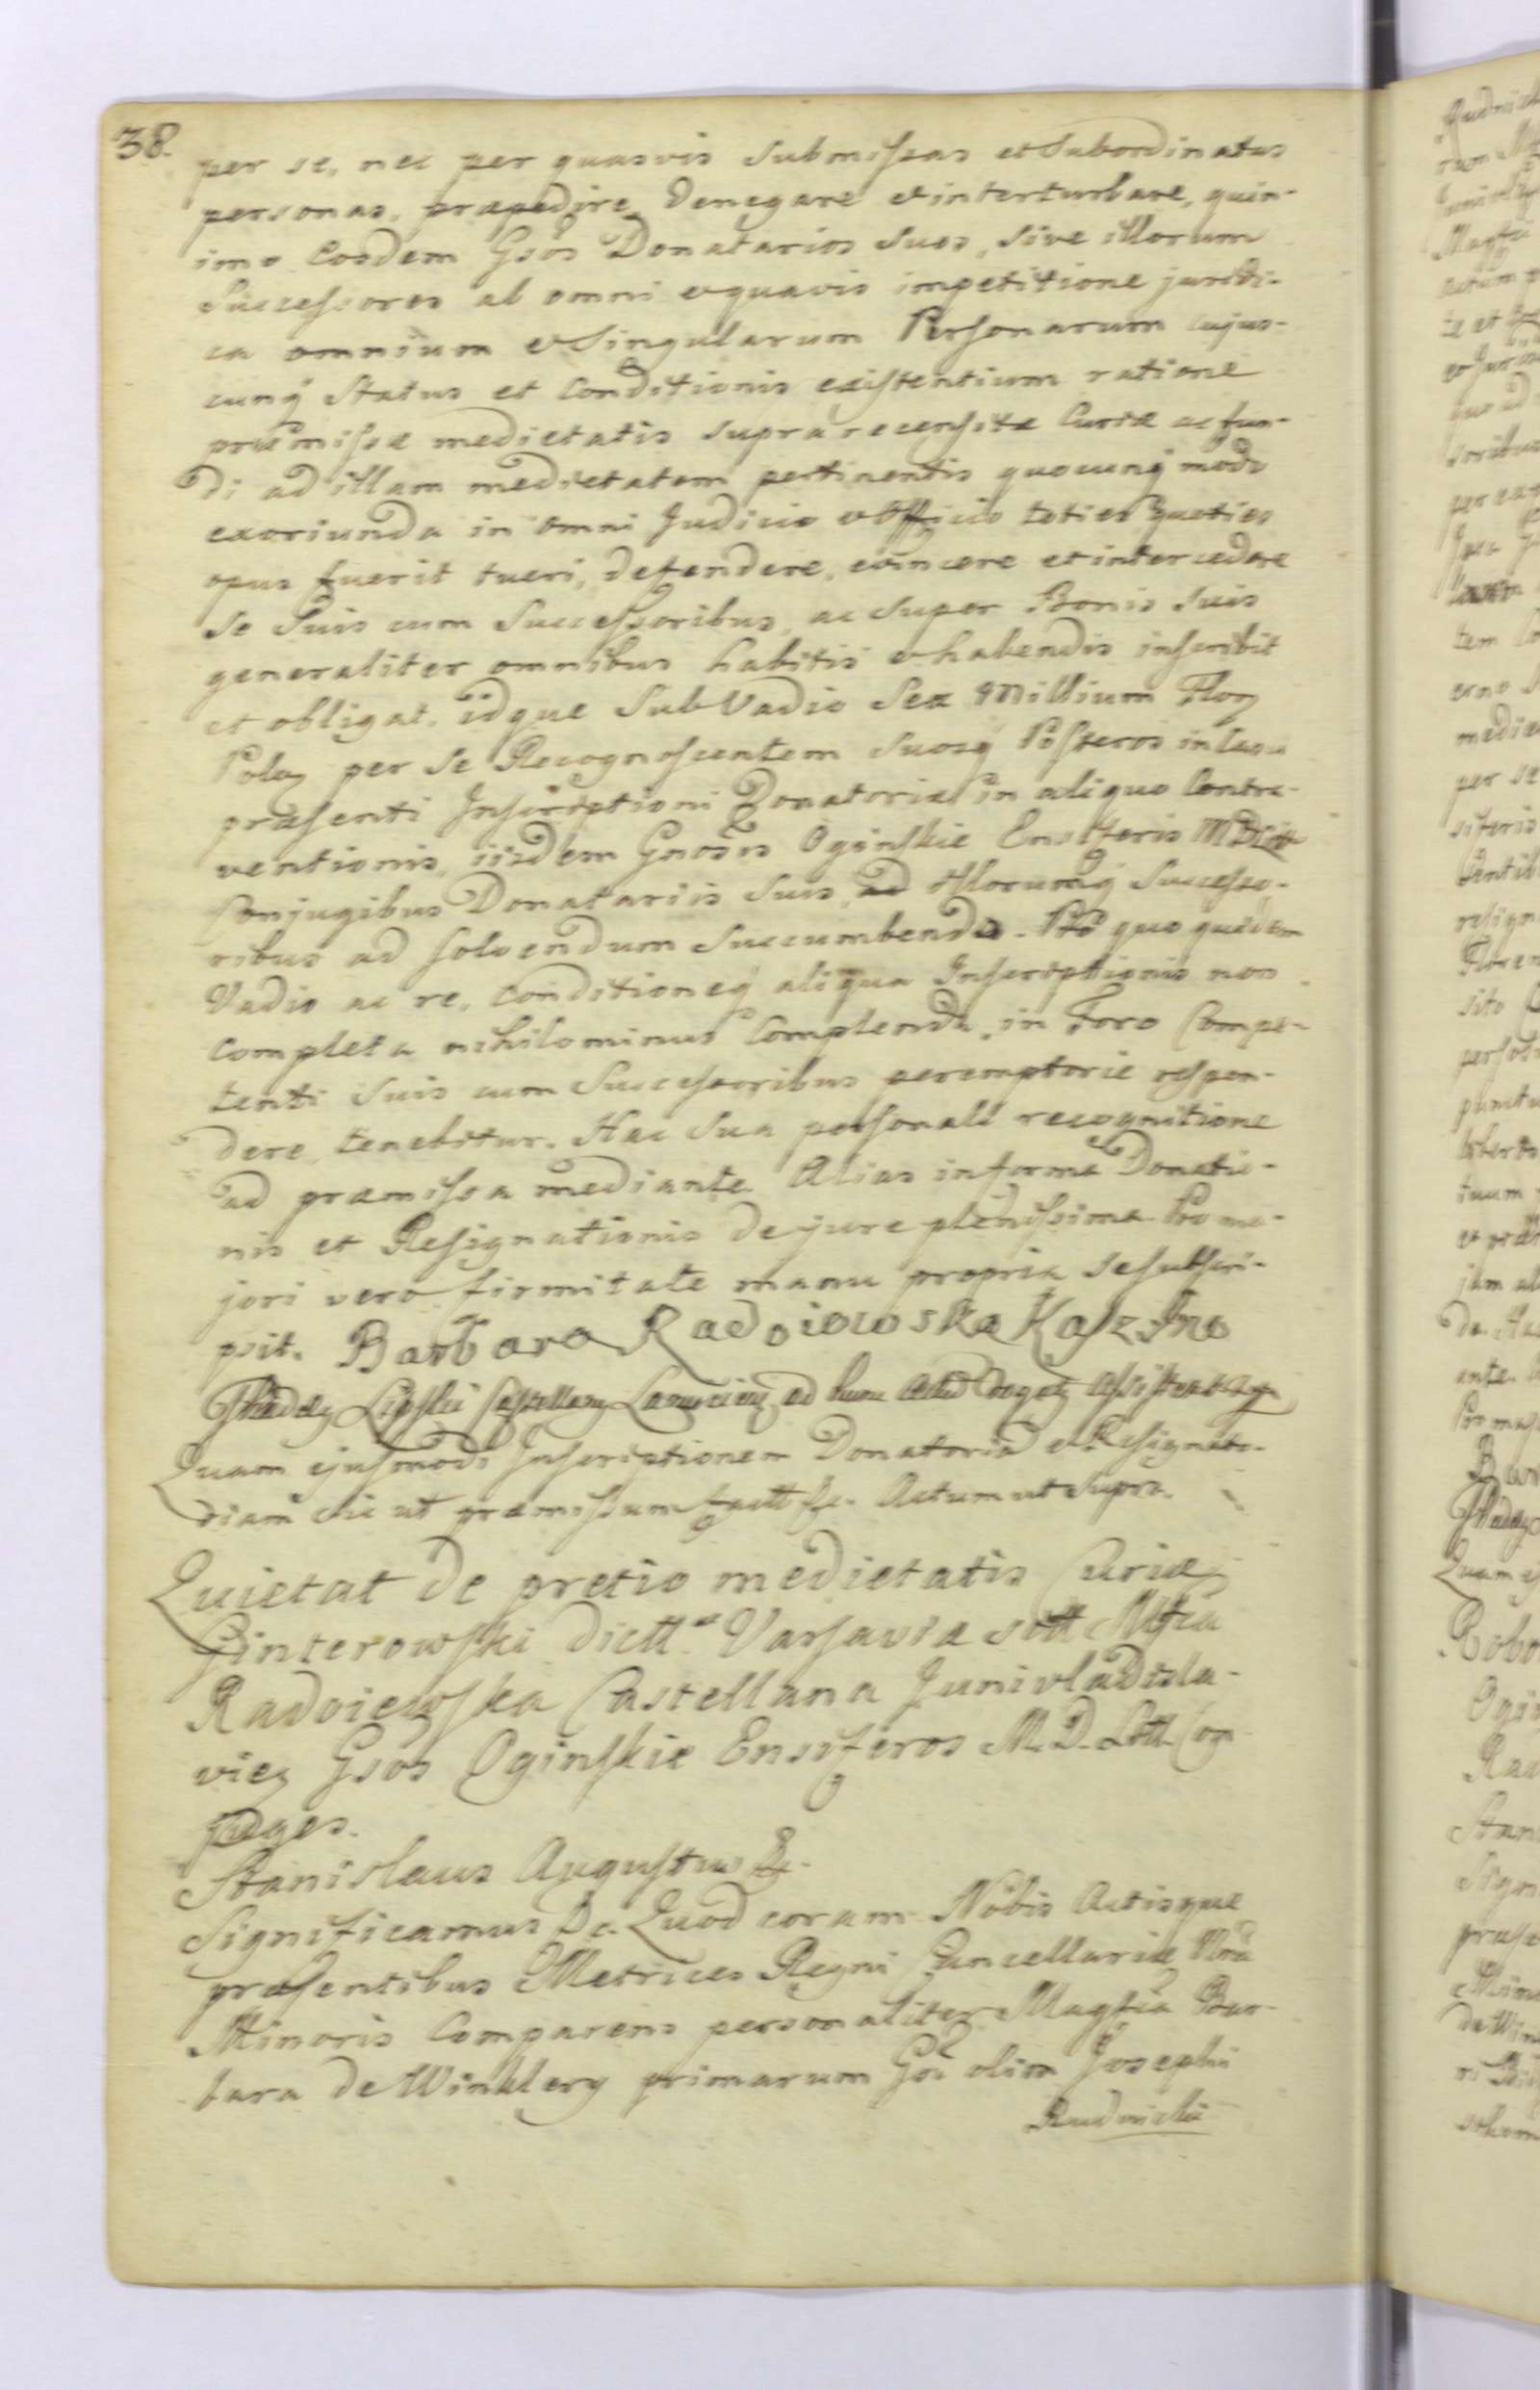 38.
per se, nec per quasvis submissas et subordinatas
personas, præpedire, denegare et interturbare, quin-
imo Eosdem Gsos Donatarios suos, sive illorum
Successores ab omni et quavis impetitione juridi-
ca omnium et Singularum Personarum cujus-
cunq Status et Conditionis existentium ratione
præmissæ medietatis supra recensitæ Curiæ ac fun-
di ad illam medietatem pertinentis quocunq modo
exoriunda in omni Judicio et Officio toties quoties
opus fuerit tueri, defendere, evincere et intercedere
se Suis cum Successoribus, ac super Bonis suis
generaliter omnibus habitis et habendis inscribit
et obligat. idque Sub Vadio Sex Millium Flor
Polo per se Recognoscentem suosq Posteros in casu
præsenti Inscriptioni Donatoriæ in aliquo Contra-
ventionis, iisdem Gnosis Oginskie Ensiferis MDLitt
Conjugibus Donatariis suis, illorumq Successo-
ribus ad solvendum succumbendo. Pro quo quidem
Vadio ac re, conditioneq aliqua Inscriptionis non
completa nihilominus Complenda, in Foro Compe-
tenti Suis cum Successoribus peremptorie respon-
dere tenebitur. Hac sua personali recognitione
ad præmissa mediante. Alias in forma Donatio-
nis et Resignationis de jure plenissima. Pro ma-
jori vero firmitate manu propria se subscri-
psit. Barbara Radoiowska Kasz Ino
Thadeg Lipski Castellang ad hunc actum Rogatg assistens
Quam ejusmodi Inscriptionem Donatoriã et Resignato-
riam sic ut præmissum factt &c. Actum ut supra.
Quietat de pretio medietatis Curiæ
Ginterowski dictt Varsaviæ sitt Mfca
Radoiewska Castellana Junivladisla-
vieg Gsos Oginskie Ensiferos M. D. Litt. Con-
juges.
Stanislaus Augustus &c.
Significamus &c. Quod coram Nobis Actisque
præsentibus Metrices Regni Cancellariæ Nrã
Minoris Comparens personaliter Magfca Bar-
bara de Winklery primarum Gsi olim Josephi
Rudnicki